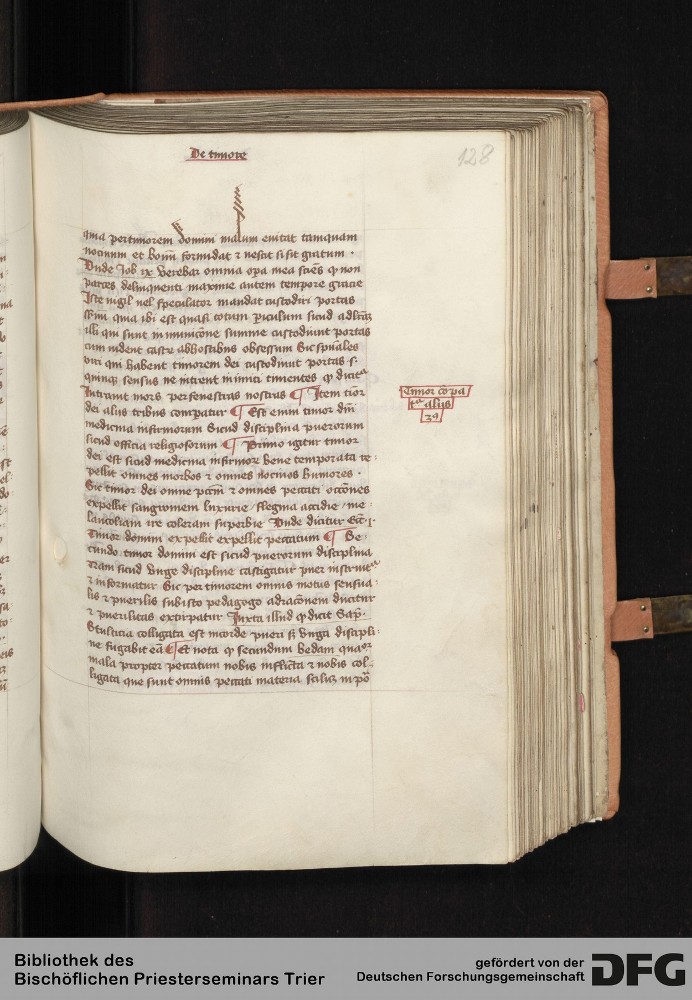 De timore
128
quia per timorem domini malum euitat tamquam
nociuum et bonum formidat et nescit si sit gratum .
Unde Job ix Verebar omnia opa mea sciēs ꝙ non
parces delinquenti maxime autem tempore gracie
Iste vigil uel speculator mandat custodiri portas
quia ibi est quasi totum piculum sicud
illi qui sunt in municōne summe custodiunt portas
cum vident castrū ab hostibus obsessum Sic spūales
viri qui habent timorem dei custodiunt portas s.
quinqꝫ sensus ne intrent inimici timentes ꝙ dicitᵃ
Intrauit mors per fenestras nostras ¶ Item tīor
dei alijs tribus comparatur ¶ Est enim timor dn̄i
medicina infirmorum Sicud disciplina puerorum
sicud officia religiosorum ¶ Primo igitur timor
dei est sicud medicina infirmorū bene temporata re-
pellit omnes morbos et omnes nociuos humores .
Sic timor dei omne pctm̄ et omnes peccati occōnes
expellit sangwinem luxurie / flegma accidie / me-
lancoliam ire coleram superbie Unde dicitur Ecc̄i .
Timor domini expellit expellit peccatum ¶ Se-
cundo timor domini est sicud puerorum disciplina
Nam sicud virge discipline castigatur puer instruitᵃ
et informatur Sic per timorem omnis motus sensua-
lis et puerilis sub isto pedagogo ad racōnem ducitur
et puerilitas extirpatur Juxta illud ꝙ dicit Sap̄.
Stulticia colligata est in corde pueri sꝫ virga discipli-
ne fugabit eā ¶ Et nota ꝙ secundum bedam
mala propter peccatum nobis inflicta et nobis col-
ligata que sunt omnis peccati materia scilicꝫ
Timor cōpa
tᵃ alijs
3ꝰ
Bibliothek des
Bischöflichen Priesterseminars Trier
gefördert von der
Deutschen Forschungsgemeinschaft
DFG